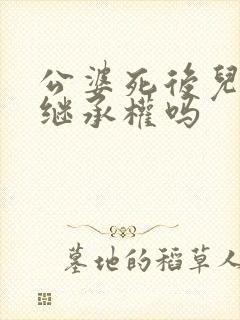 公婆死後兒
继承權吗
墓地的稻草人